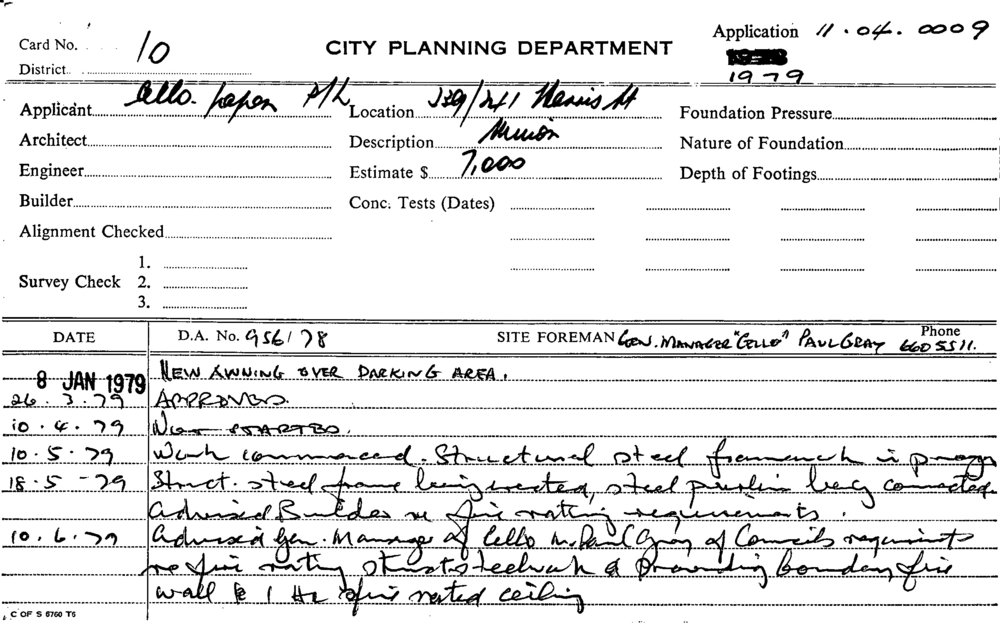 Application 11.04.0009
Card No. 10
CITY PLANNING DEPARTMENT
District
1979
Applicant Cello. paper P/L Location 239/241 Harris St Foundation Pressure
Architect Description Nature of Foundation
Engineer Estimate $ 7,000 Depth of Footings
Builder Conc. Tests (Dates)
Alignment Checked
1.
Survey Check 2.
3.
DATE D.A. No. 956/78 SITE FOREMAN Gen. MANAGER "CELLO" PAUL GRAY Phone 660 5511.
8 JAN 1979 NEW AWNING OVER PARKING AREA.
26.3.79 APPROVED.
10.4.79 NOT STARTED.
10.5.79 Work commenced. Structural steel framework in progress
18.5-79 Struct. steel frame being erected, steel purlin being connected.
Advised Builder re fire rating requirements.
10.6.79 Advised Gen. Manager of Cello Mr Paul Gray of Councils requirements
re fire rating struct steelwork & providing boundary fire
wall & 1 Hr fire rated ceiling
C OF S 6760 T6